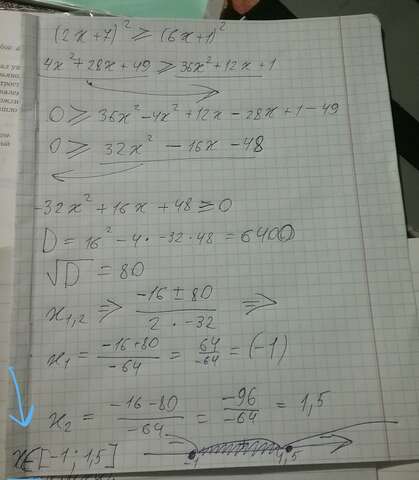 (2x+7)² ≥ (6x+1)²
4x²+28x+49 ≥ 36x²+12x+1
0 ≥ 36x²-4x²+12x-28x+1-49
0 ≥ 32x² - 16x - 48
-32x²+16x+48 ≥ 0
D = 16² - 4 · -32 · 48 = 6400
√D = 80
x₁,₂ ⇒ (-16 ± 80)/(2 · -32) ⇒
x₁ = (-16+80)/(-64) = 64/(-64) = (-1)
x₂ = (-16-80)/(-64) = (-96)/(-64) = 1,5
x∈[-1; 1,5] -1 1,5